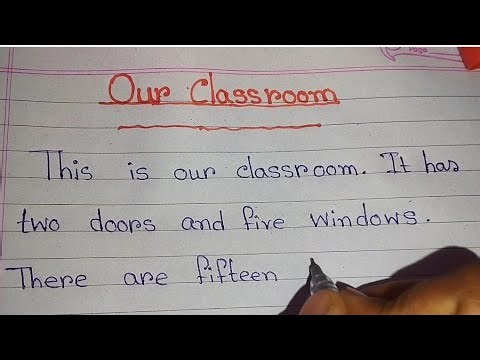 Page
Our Classroom
This is our classroom. It has
two doors and five windows.
There are fifteen